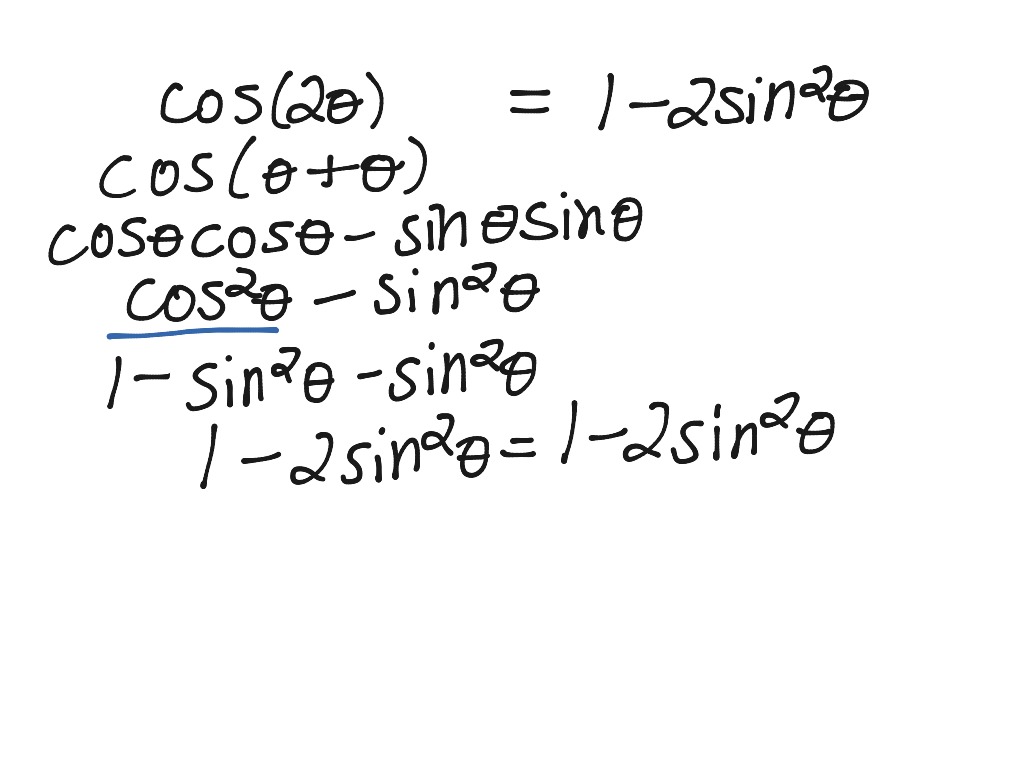 cos(2θ) = 1-2sin²θ
cos(θ+θ)
cosθcosθ - sinθsinθ
cos²θ - sin²θ
1 - sin²θ - sin²θ
1 - 2sin²θ = 1-2sin²θ